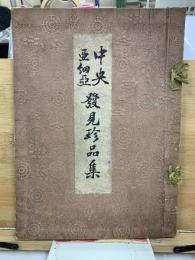 中央
亞細亞
發見珍品集